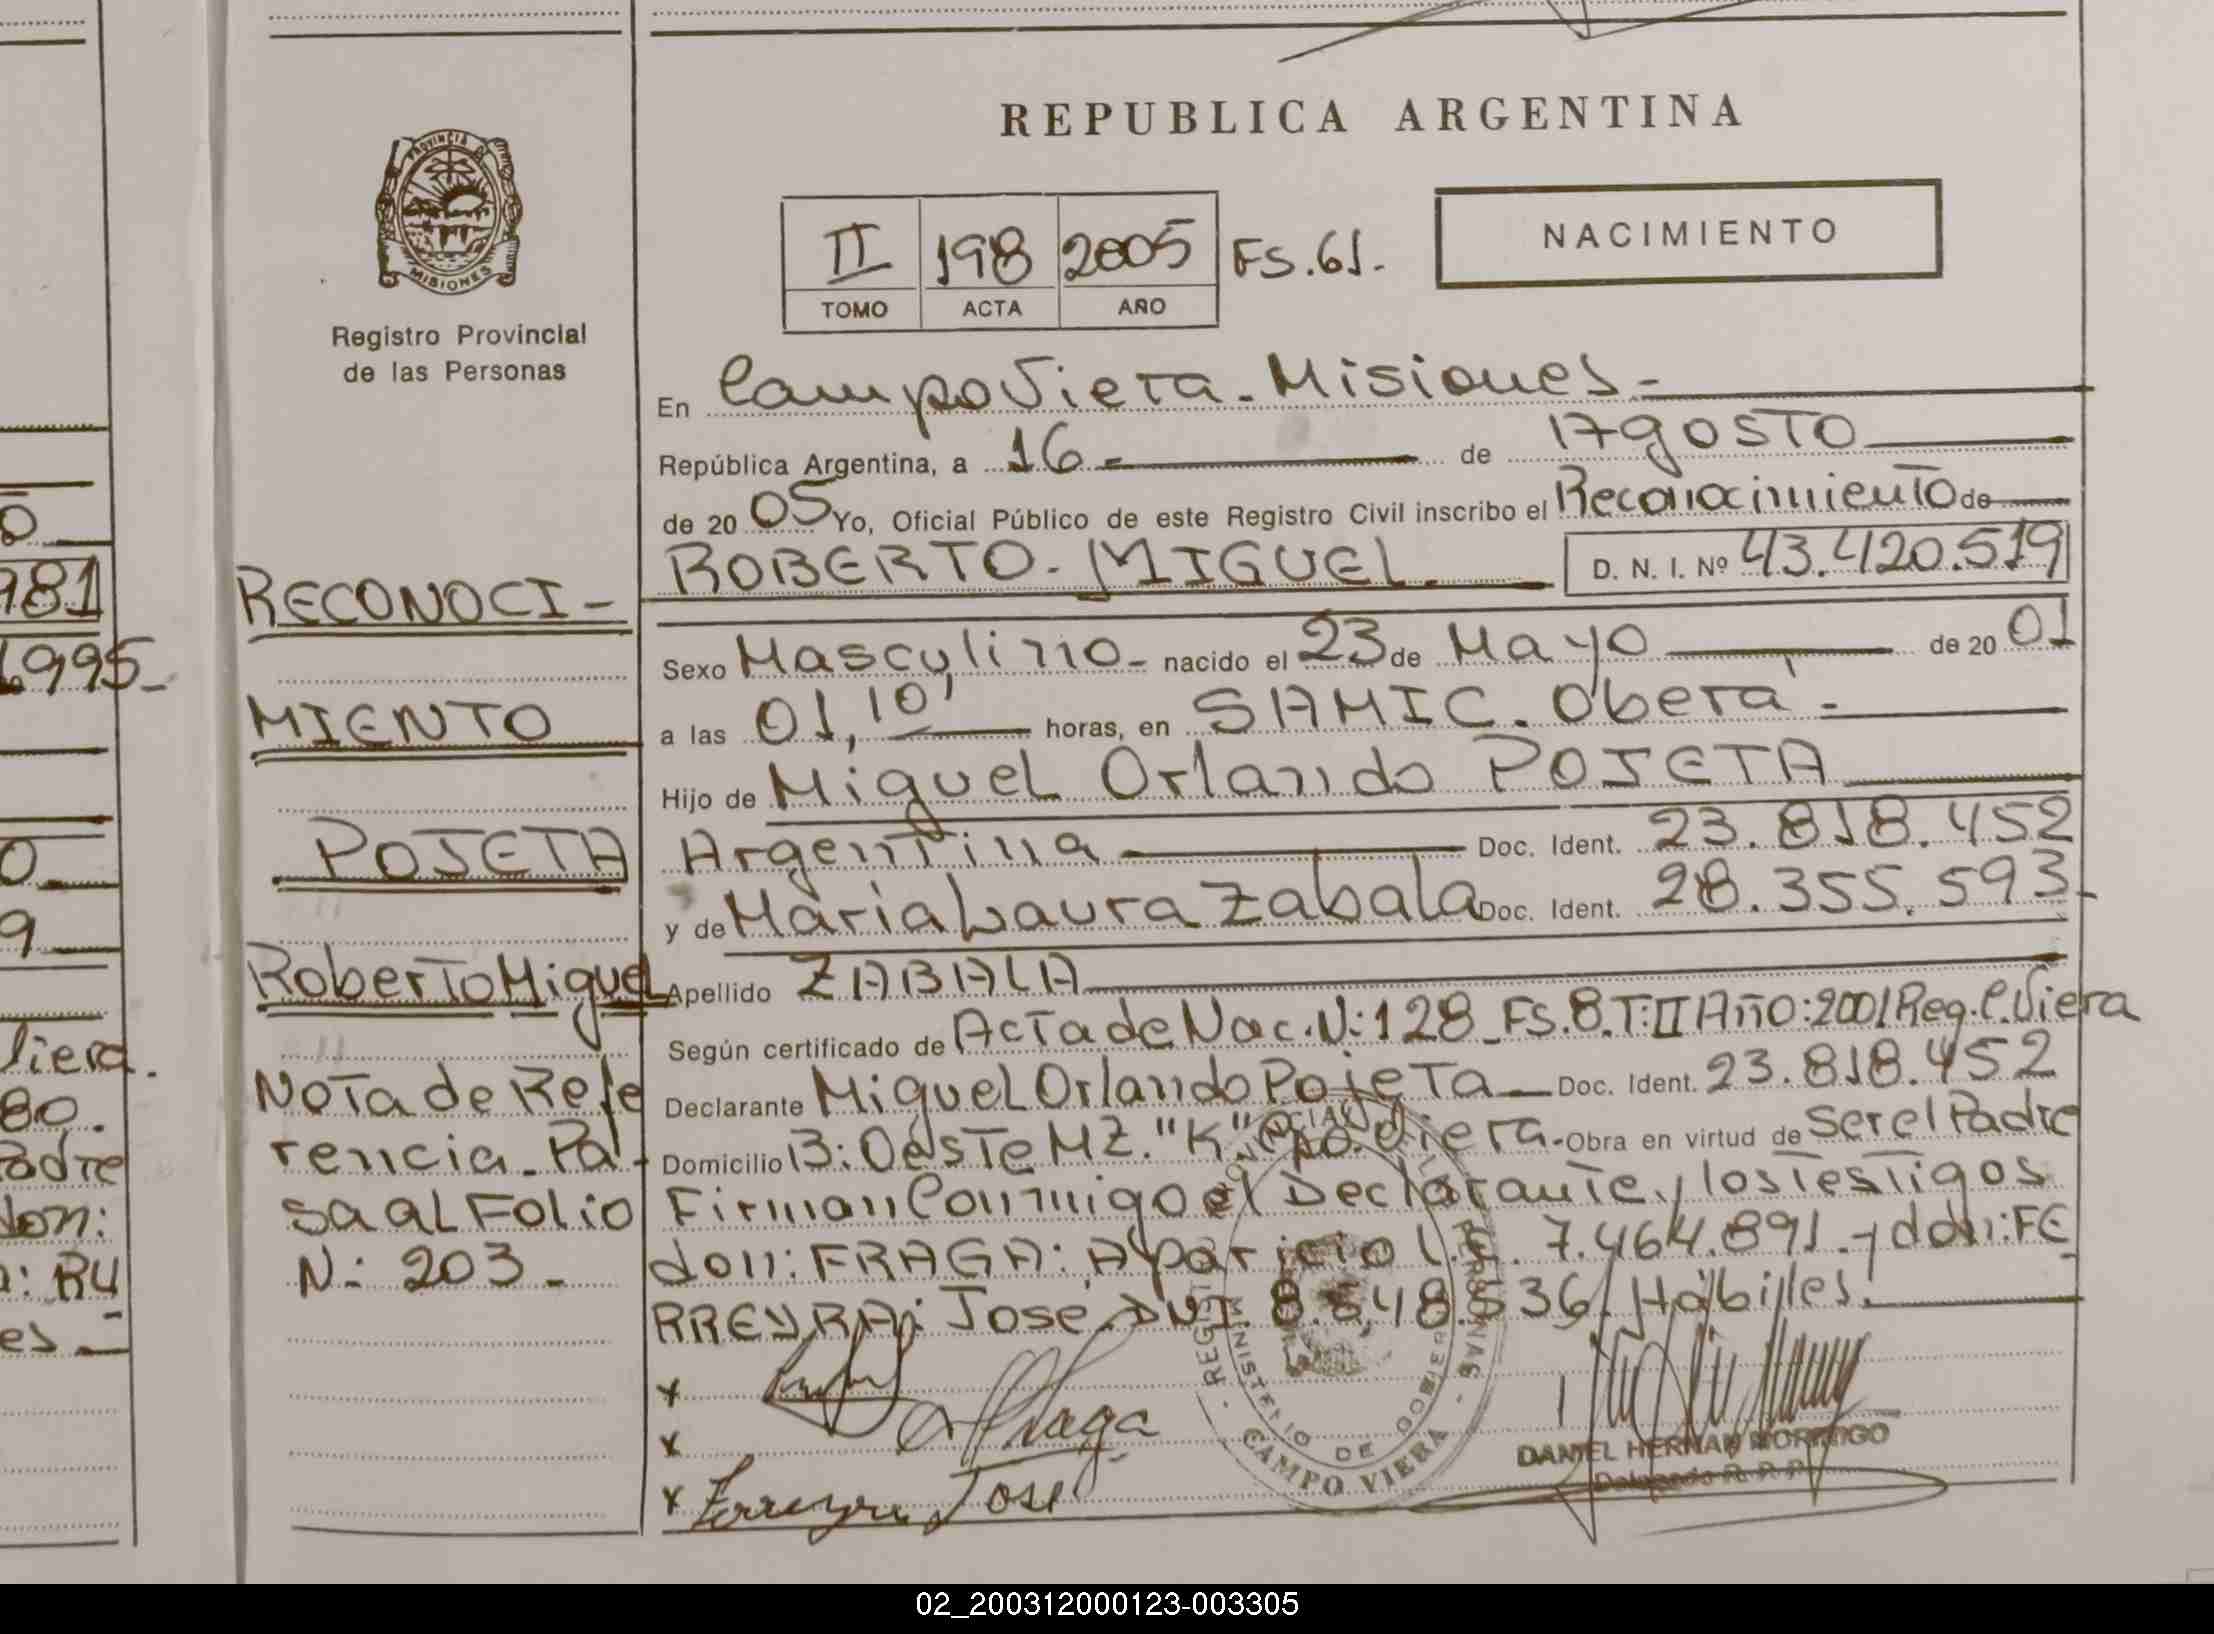 REPUBLICA ARGENTINA
PROVINCIA DE
MISIONES
Registro Provincial
de las Personas
II 198 2005 FS.61.-
TOMO ACTA AÑO
NACIMIENTO
En Campo Viera - Misiones -
República Argentina, a 16 - de Agosto
de 2005 Yo, Oficial Público de este Registro Civil inscribo el Reconocimiento de
ROBERTO - MIGUEL. D. N. I. Nº 43.420.519
Sexo Masculino - nacido el 23 de Mayo de 20 01
a las 01,10' horas, en SAMIC. Oberá -
Hijo de Miguel Orlando POJETA
Argentina Doc. Ident. 23.818.452
y de Maria Laura Zabala Doc. Ident. 28.355.593-
Apellido ZABALA
Según certificado de Acta de Nac. N: 128 - FS. 8. T: II Año: 2001 Reg. C. Viera
Declarante Miguel Orlando Pojeta - Doc. Ident. 23.818.452
Domicilio B: Oeste MZ. "K" Cpo. Viera - Obra en virtud de Ser el Padre
Firman Conmigo el Declarante y los Testigos
don: FRAGA: Aparicio L.E. 7.464.891.- y don: FE
RREYRA: Jose. DNI. 8.548.536/ Hábiles.
x
x Fraga
x Ferreyra Jose
RECONOCI -
MIENTO
POJETA
Roberto Miguel
Nota de Refe
rencia - Pa -
sa al Folio
N: 203 -
MINISTERIO DE GOBIERNO
CAMPO VIERA
DANIEL HERNAN MORINIGO
Delegado R. P. P.
981
1995-
Viera.
80.
Padre
don:
: RU
es -
02_200312000123-003305